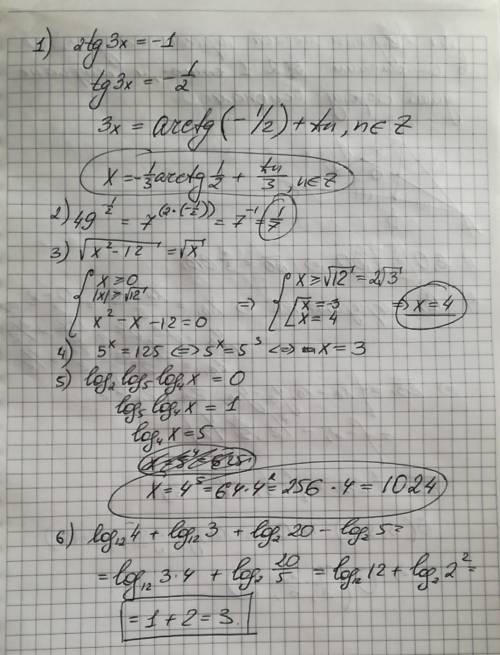 1) 2tg3x = -1
tg3x = -1/2
3x = arctg(-1/2) + πn, n∈Z
x = -1/3 arctg 1/2 + πn/3, n∈Z
2) 49^(-1/2) = 7^(2·(-1/2)) = 7^(-1) = 1/7
3) √(x²-12) = √x
{ x ≥ 0
|x| ≥ √12
x² - x - 12 = 0
=> { x ≥ √12 = 2√3
[ x = -3
x = 4
=> x = 4
4) 5^x = 125 <=> 5^x = 5^3 <=> x = 3
5) log₂ log₅ log₄ x = 0
log₅ log₄ x = 1
log₄ x = 5
x = 4^5 = 64·4² = 256·4 = 1024
6) log₁₂ 4 + log₁₂ 3 + log₂ 20 - log₂ 5 =
= log₁₂ 3·4 + log₂ 20/5 = log₁₂ 12 + log₂ 2² =
= 1 + 2 = 3.